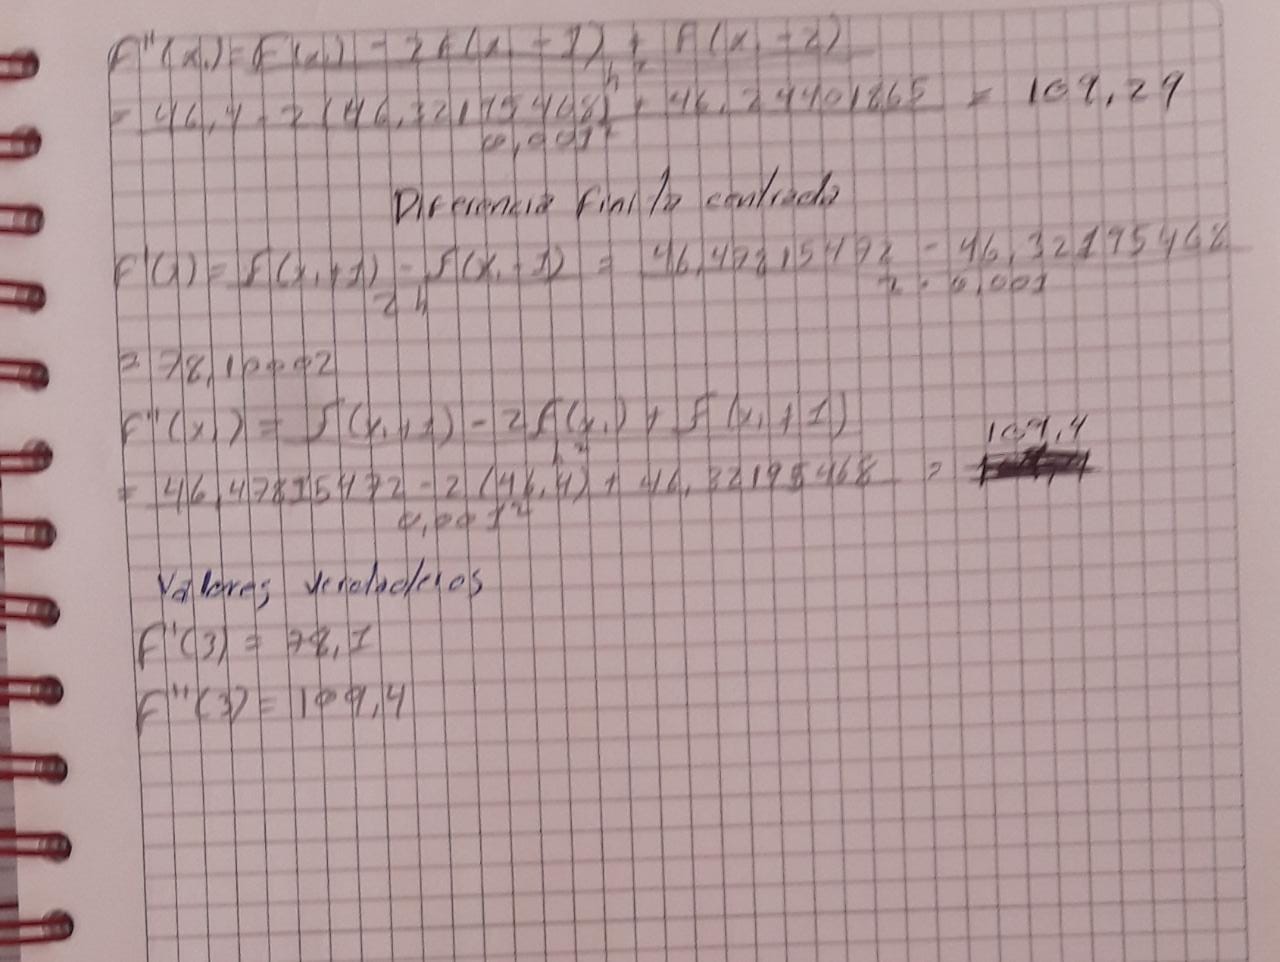 F''(xi) = F(xi) - 2f(xi - 1) + f(xi - 2)
h²
= 46,4 - 2(46,32195468) + 46,24401865 = 109,29
0,001²
Diferencia finita centrada
F'(x) = f(xi+1) - f(xi-1) = 46,47815472 - 46,32195468
2h 2·0,001
= 78,10002
F''(xi) = f(xi+1) - 2f(xi) + f(xi+1)
h² 109,4
= 46,47815472 - 2(46,4) + 46,32195468 =
0,001²
Valores verdaderos
F'(3) = 78,1
F''(3) = 109,4